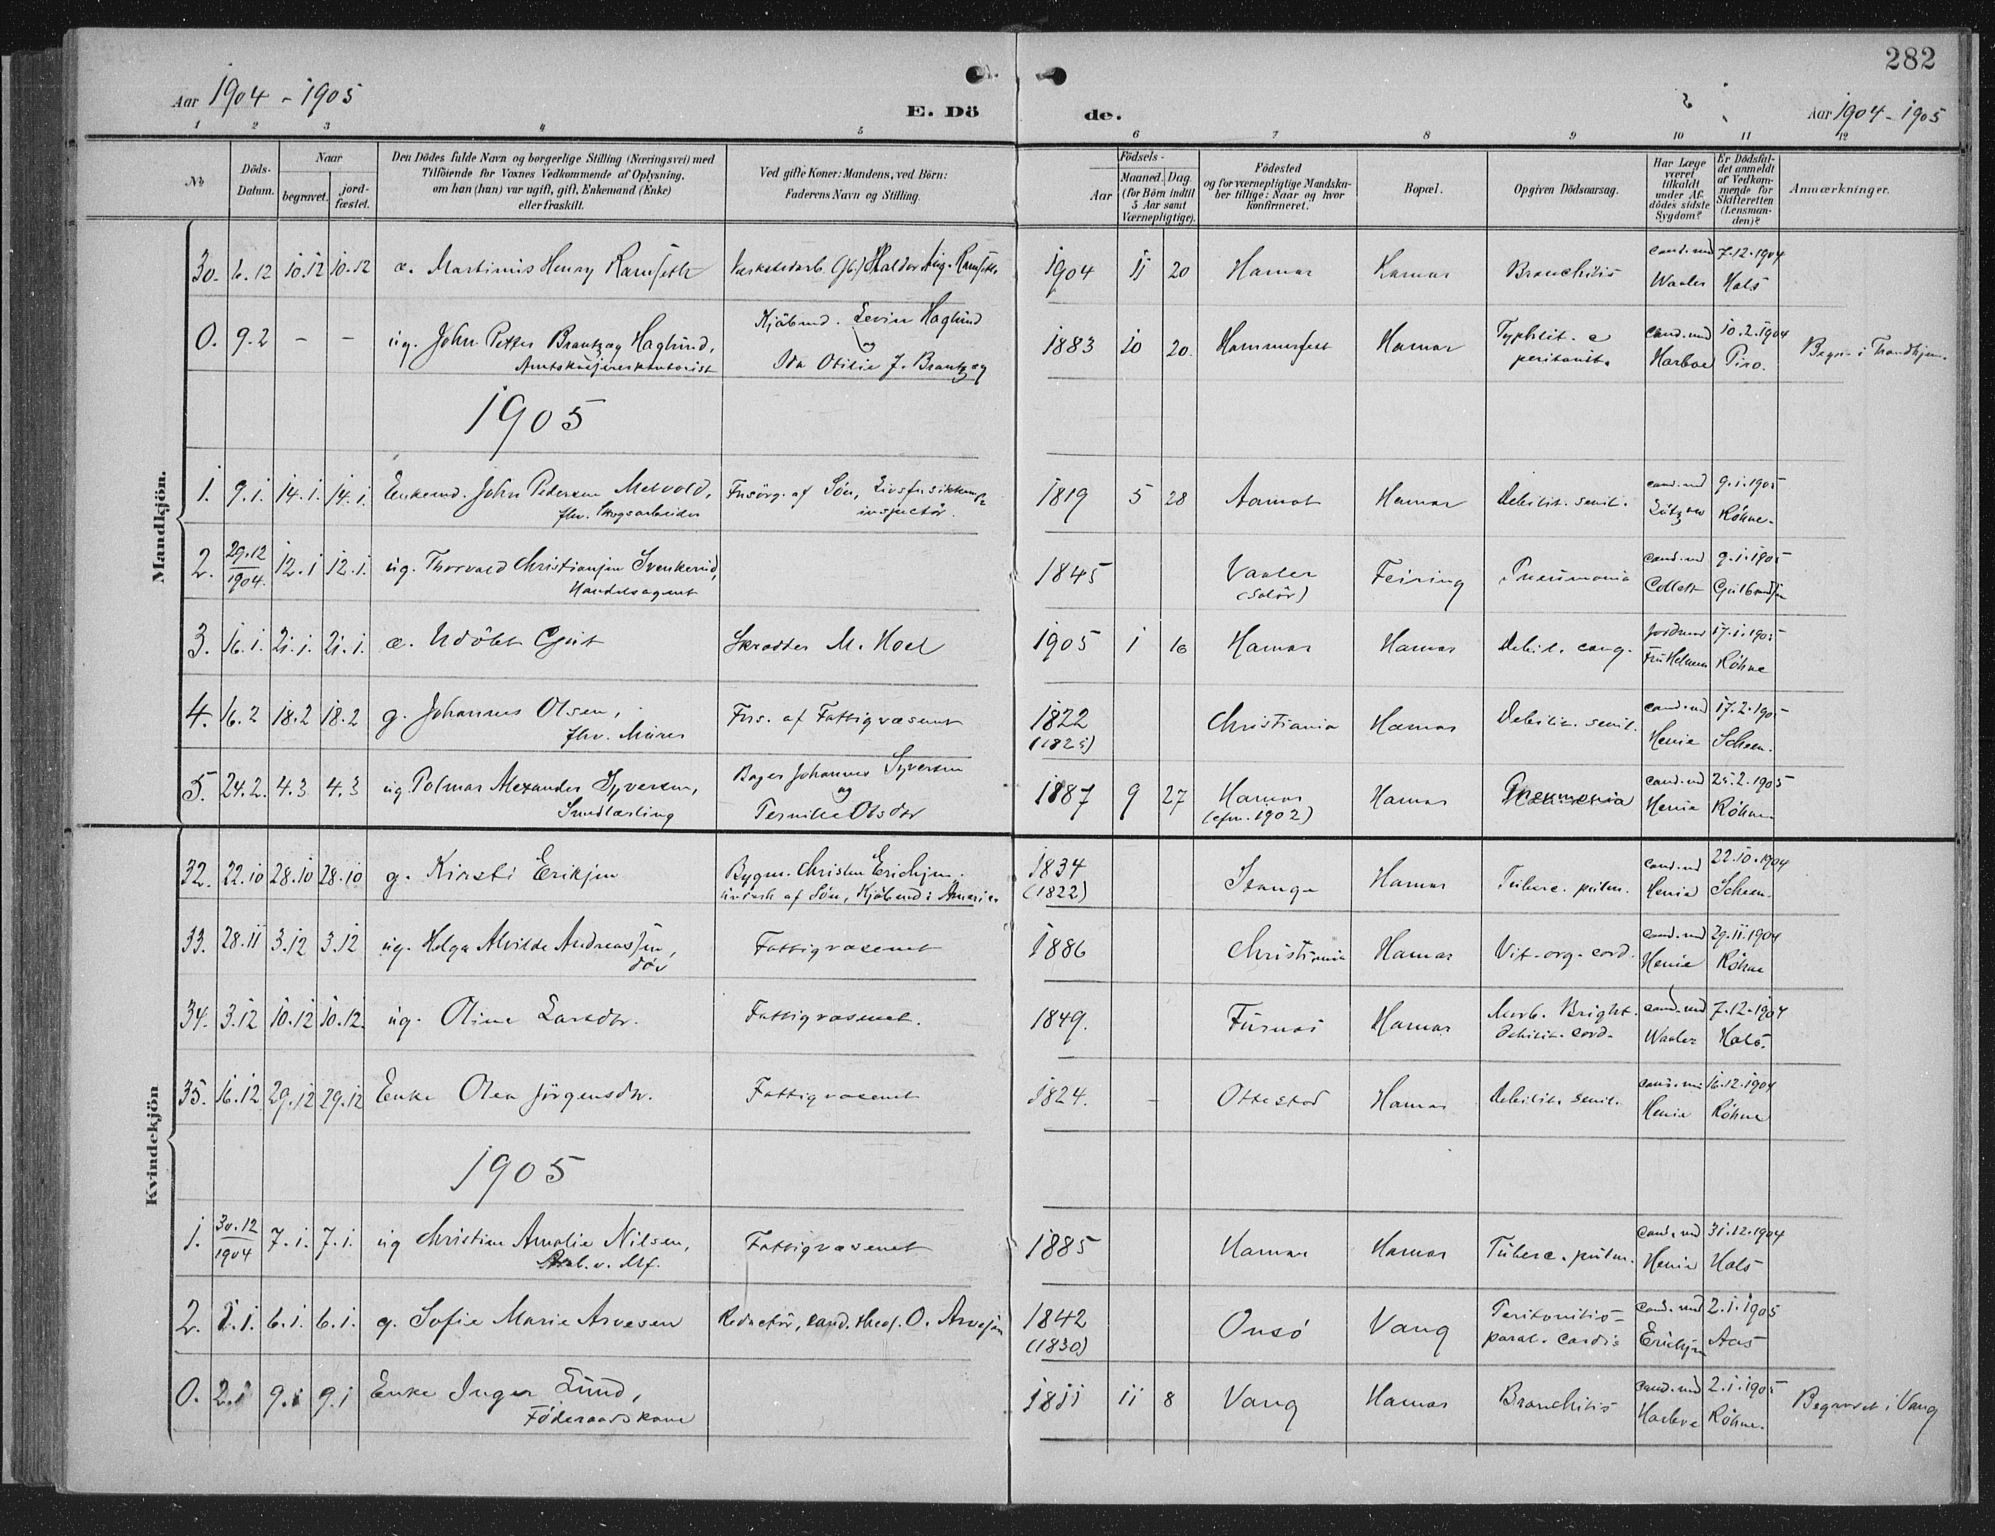 282
Aar 1904 - 1905
E. Dö
de.
Aar 1904 - 1905
1 2 3 4 5 6 7 8 9 10 11 12
No
Döds-Datum.
Naar
begravet.
jord-fæstet.
Den Dödes fulde Navn og borgerlige Stilling (Næringsvei) med
Tilföiende for Voxnes Vedkommende af Oplysning,
om han (hun) var ugift, gift, Enkemand (Enke)
eller fraskilt.
Ved gifte Koner: Mandens, ved Börn:
Faderens Navn og Stilling.
Födsels-
Aar
Maaned. Dag
(for Börn indtil
5 Aar samt
Værnepligtige).
Födested
og for værnepligtige Mandska-
ber tillige: Naar og hvor
konfirmeret.
Bopæl.
Opgiven Dödsaarsag.
Har Læge
været
tilkaldt
under Af-
dödes sidste
Sygdom?
Er Dödsfal-
det anmeldt
af Vedkom-
mende for
Skifteretten
(Lensman-
den)?
Anmærkninger.
Mandkjön.
30. 6.12 10.12 10.12 æ. Martinus Henry Ramseth 1904 11 20 Hamar Hamar Bronchitis cand.med Waaler 7.12.1904 Hals
0. 9.2 - - ug. John Petter Brantzæg Haglund, Kjöbmd. Levin Haglund
og
Ida Otilie J. Brantzæg 1883 10 20 Hammerfest Hamar Typhlit. e peritonit. cand.med Harboe 10.2.1904 Piro. Begr. i Trondhjem.
1905
1. 9.1. 14.1. 14.1. Enkemd. John Pedersen Melvold,
fhv. Skogsarbeider Forsörg. af Sön, Livsforsikkrings
inspectör. 1819 5 28 Aamot Hamar Debilit. senil. cand.med Lützow 9.1.1905 Röhne.
2. 29.12
1904. 12.1 12.1. ug. Thorvald Christiansen Svenkerud,
Handelsagent 1845 Vaaler
(Solör) Feiring Pneumonia cand.med Collett 9.1.1905 Gulbrandsen
3. 16.1. 21.1. 21.1. æ. Udöbt Gut Skrædder M. Hoel 1905 1 16 Hamar Hamar Debil. cong. Jordmor 17.1.1905 Röhne
4. 16.2 18.2 18.2 g. Johannes Olsen,
fhv. Murer Fors. af Fattigvæsenet 1822
(1821) Christiania Hamar Debilit. senil. cand.med Henie 17.2.1905 Scheen.
5. 24.2. 4.3 4.3 ug. Polmar Alexander Syversen,
Smedlærling Bager Johannes Syversen
og
Pernille Olsdtr 1887 9 27 Hamar
(cfm. 1902) Hamar Pneumonia cand.med Henie 25.2.1905 Röhne
Kvindekjön
32. 22.10 28.10 28.10 g. Kirsti Eriksen Bygm. Christen Erichsen.
underh. af Sön, Kjöbmd i America 1834
(1822) Stange Hamar Tuberc. pulm. cand.med Henie 22.10.1904 Scheen.
33. 28.11 3.12 3.12 ug. Helga Alvilde Andreassen,
döv Fattigvæsenet 1886 Christiania Hamar Vit. org. cord. cand.med Henie 29.11.1904 Röhne
34. 3.12 10.12 10.12. ug. Oline Larsdtr. Fattigvæsenet. 1849. Furnes Hamar Morb. Bright.
debilit. cord. cand.med Waaler 7.12.1904 Hals.
35. 16.12 29.12 29.12 Enke Olea Jörgensdtr. Fattigvæsenet 1824. - Ottestad Hamar Debilit. senil. cand.med Henie 16.12.1904 Röhne
1905
1. 30.12
1904 7.1. 7.1. ug Christine Amalie Nilsen, Fattigvæsenet 1885 Hamar Hamar Tuberc. pulm. cand.med Henie 31.12.1904 Hals
2. 1.1. 6.1. 6.1. g. Sofie Marie Arvesen Redactör, cand. theol. O. Arvesen 1842
(1830) Onsö Vang Peritonitis
paral. cordis cand.med Erichsen 2.1.1905 Aas
0. 2.1 9.1 9.1 Enke Inger Lund,
Föderaadskone 1811 11 8 Vang Hamar Bronchitis cand.med Harboe 2.1.1905 Röhne. Begravet i Vang